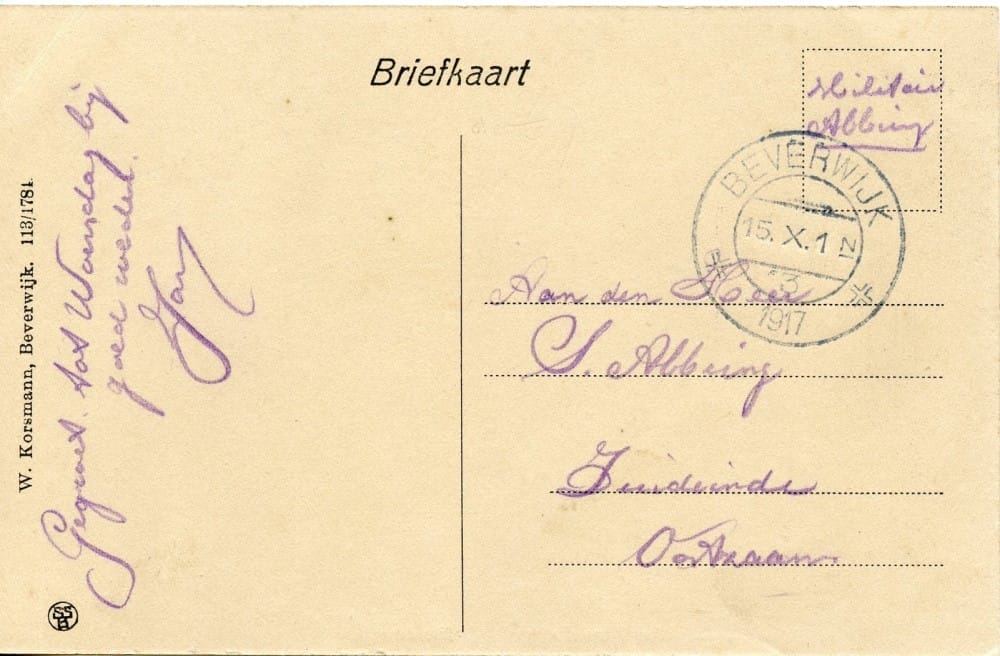 Briefkaart
Militair
Abbing
BEVERWIJK
15.X.1 N
13
1917
Aan den Heer
S. Abbing
Zuideinde
Oostzaan
Gegroet. tot Woensdag bij
goed weder.
Jan
W. Korsmann, Beverwijk. 113/1784